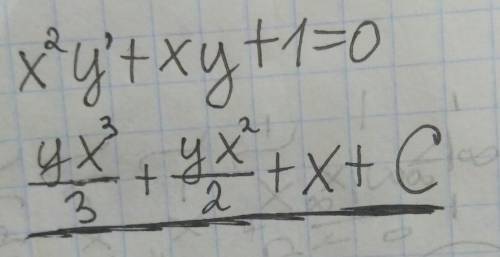 x²y' + xy + 1 = 0
yx³/3 + yx²/2 + x + C